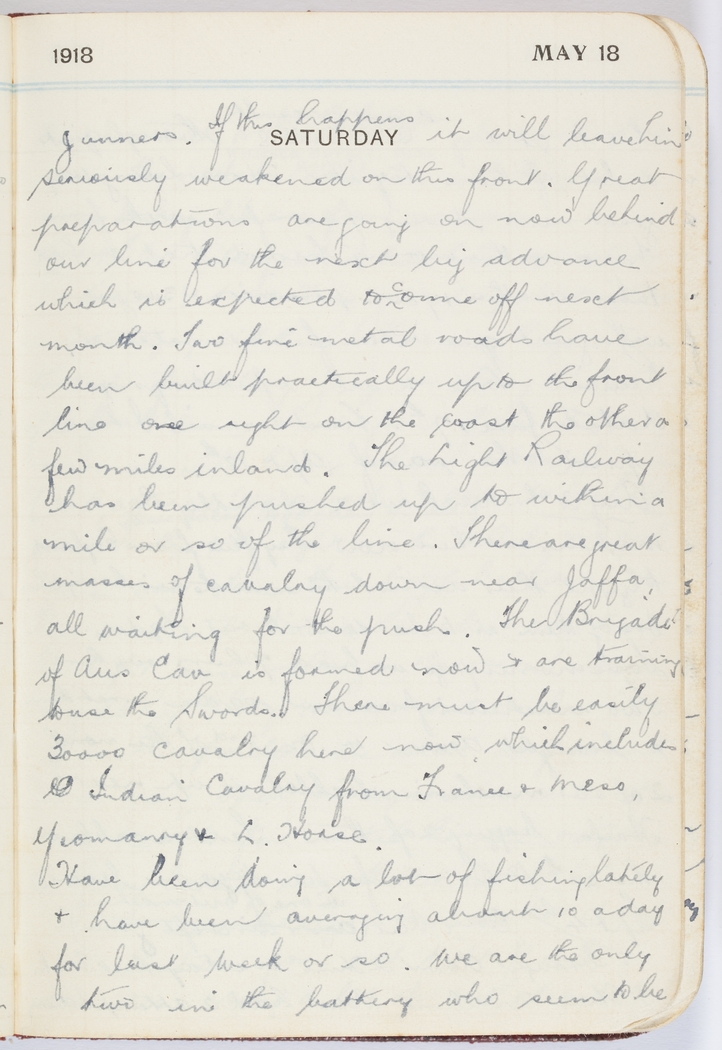 1918 MAY 18
SATURDAY
gunners. If this happens it will leave him
seriously weakened on this front. Great
preparations are going on now behind
our line for the next big advance
which is expected to come off next
month. Two fine metal roads have
been built practically up to the front
line one right on the coast the other a
few miles inland. The Light Railway
has been pushed up to within a
mile or so of the line. There are great
masses of cavalry down near Jaffa,
all waiting for the push. The Brigade
of Aus Cav is formed now & are training
to use the Swords. There must be easily
30000 cavalry here now which includes
Indian Cavalry from France & Meso,
Yeomanry & L. Horse.
Have been doing a lot of fishing lately
& have been averaging about 10 a day
for last week or so. We are the only
two in the battery who seem to be